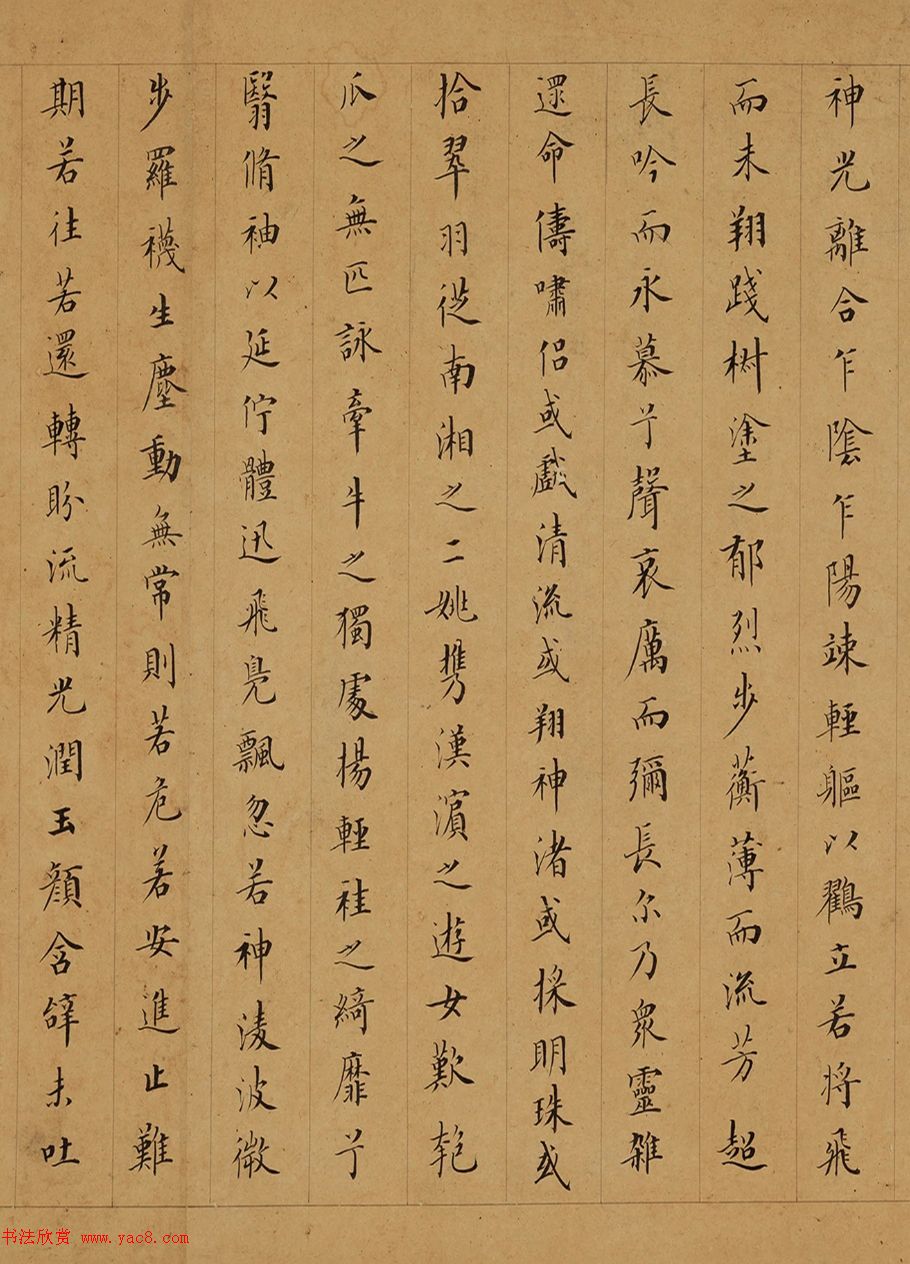 神光離合乍陰乍陽竦輕軀以鸛立若将飛
而未翔踐樹塗之郁烈步蘅薄而流芳超
長吟而永慕兮聲哀厲而彌長尔乃衆靈雜
遝命儔嘯侣或戲清流或翔神渚或採明珠或
拾翠羽從南湘之二姚携漢濵之遊女歎匏
瓜之無匹詠牽牛之獨處揚輕袿之綺靡兮
翳脩袖以延佇體迅飛鳧飄忽若神淩波微
步羅襪生塵動無常則若危若安進止難
期若往若還轉盼流精光潤玉顔含辝未吐
书法欣赏 www.yac8.com